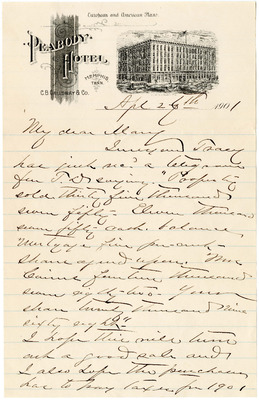 European and American Plans
PEABODY
HOTEL
MEMPHIS
TENN.
C.B. GALLOWAY & CO.
Apl 26th 1901
My dear Mary
Tracy
has just rec'd a telegram
fm saying. "Property
sold thirty five thousand
seven fifty - Eleven thousand
seven fifty cash. balance
mortgage five per cent -
share agreed upon. Mrs
fourteen thousand
seven eighty-two - Your
share twenty thousand nine
sixty eight"
I hope this will turn
out a good sale and
I also hope the purchaser
has to pay taxes for 1901